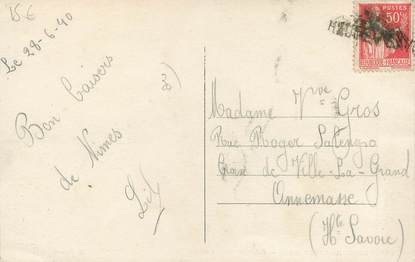 15€
Le 28-6-40
Bon baisers
de Nîmes
Lily
3)
POSTES
50c
Madame Vve Gros
Rue Roger Salengro
de Ville-La-Grand
Annemasse
(Hte Savoie)